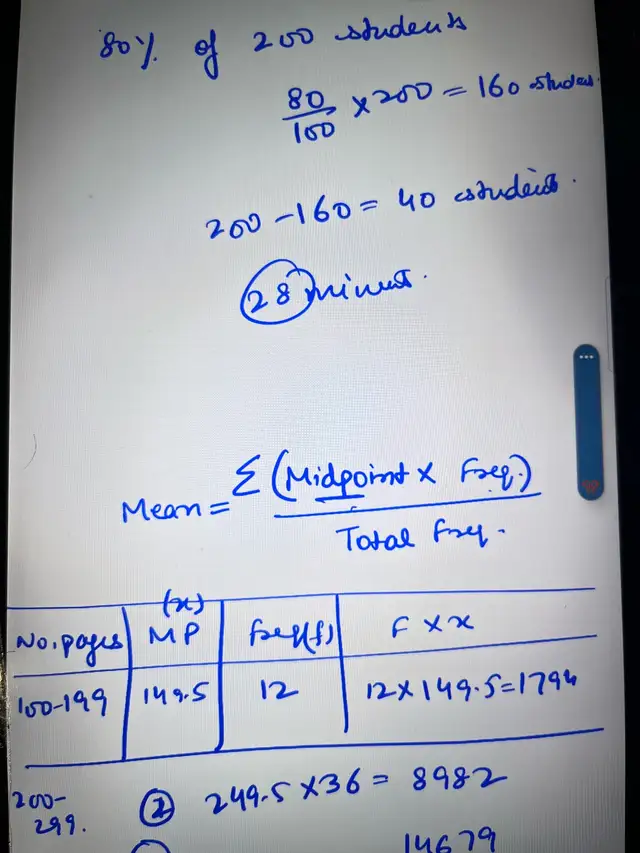 80% of 200 students
80/100 × 200 = 160 studens.
200 - 160 = 40 students.
28 minuts.
Mean = Σ (Midpoint × Freq.) / Total Freq.
No. pages | (x) MP | freq(f) | F × x
100-199 | 149.5 | 12 | 12 × 149.5 = 1794
200-299. ② 249.5 × 36 = 8982
14679